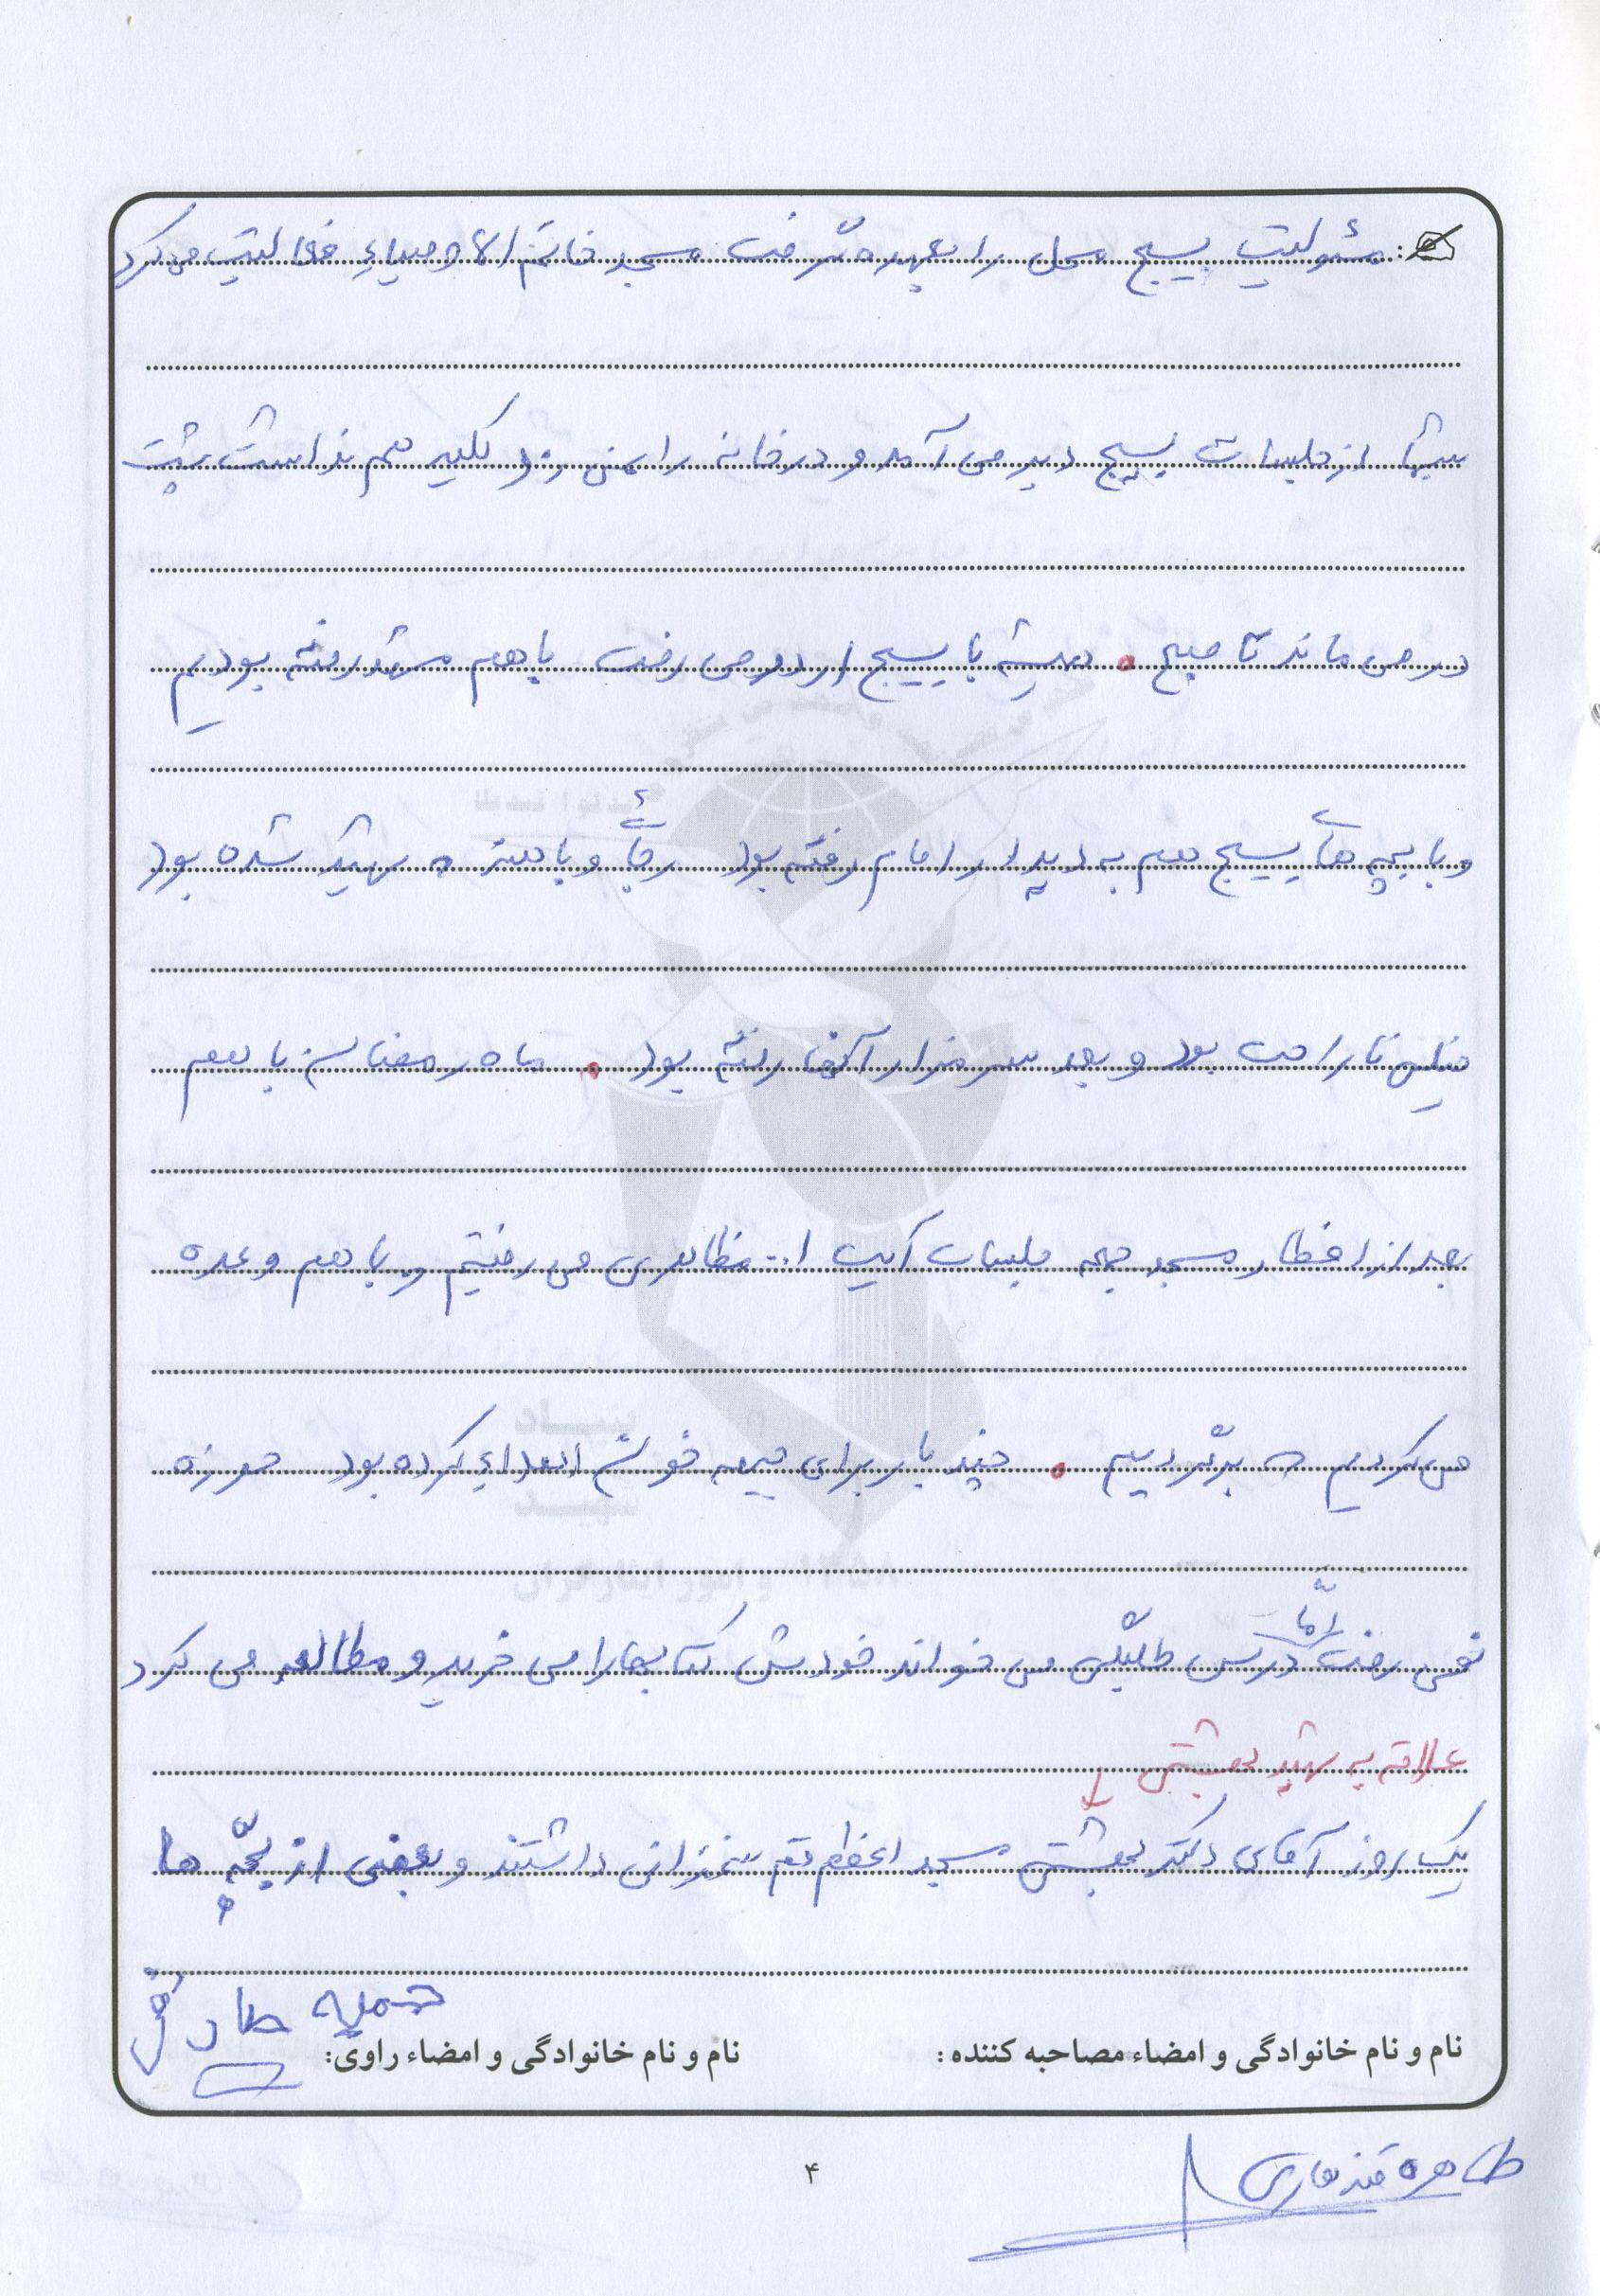 مسئولیت بسیج محل را بعهده گرفت مسجد خاتم الاوصیاء فعالیت می کرد
شبها از جلسات بسیج دیر می آمد و در خانه را نمی زد کلید هم نداشت پشت
در می ماند تا صبح . همیشه با بسیج اردو می رفت با هم مشهد رفته بودیم
و با بچه های بسیج هم به دیدار امام رفته بود رجائی و باهنر که شهید شده بود
خیلی ناراحت بود و بعد سر مزار آنها رفته بود . ماه رمضان با هم
بعد از افطار مسجد جمعه جلسات آیت ا... مظاهری می رفتیم و با هم وعده
می کردیم که برگردیم . چند بار برای جبهه خونش اهداء کرده بود حوزه
نمی رفت امّا درس طلبگی می خواند خودش کتابها را می خرید و مطالعه می کرد
علاقه به شهید بهشتی
یک روز آقای دکتر بهشتی مسجد اعظم قم سخنرانی داشتند و بعضی از بچّه ها
نام و نام خانوادگی و امضاء مصاحبه کننده : نام و نام خانوادگی و امضاء راوی: جمیله صادقی
طاهره قندهاری
۴